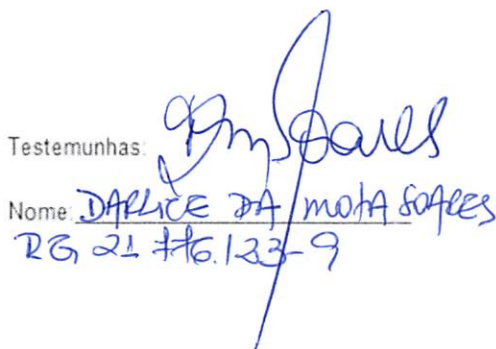 Testemunhas: DmSoares
Nome: DARLICE DA MOTA SOARES
RG 21 776.123-9